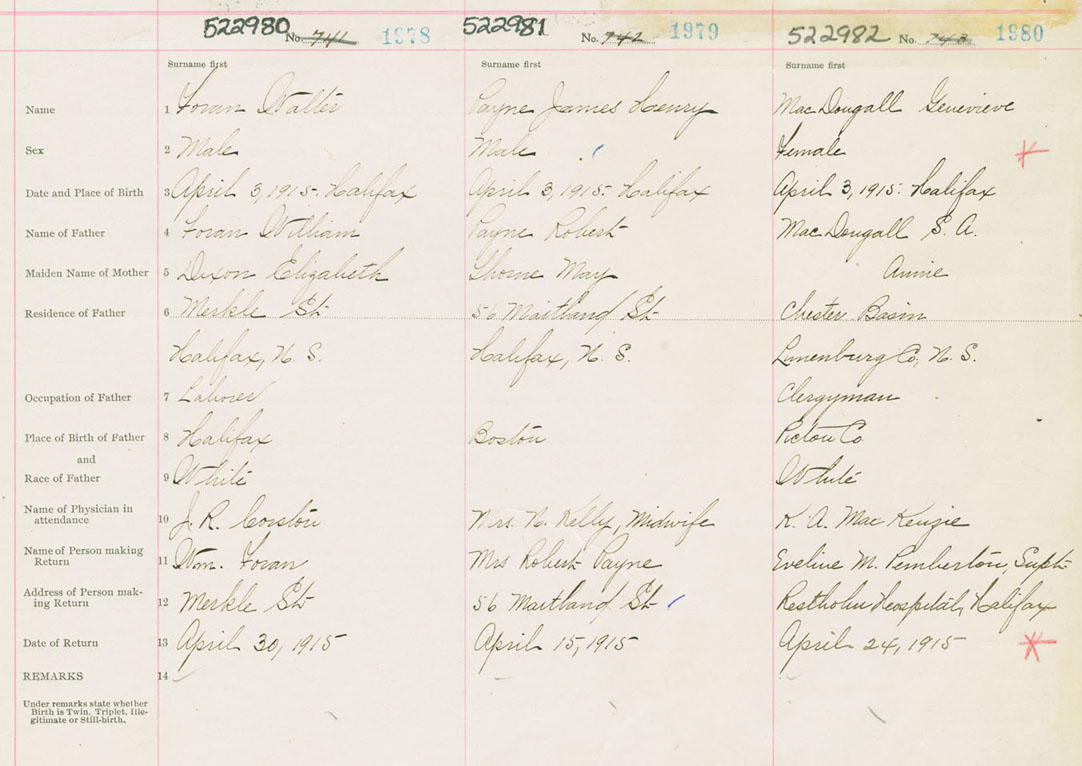 522980 No. 741 1978 522981 No. 742 1979 522982 No. 743 1980
Surname first Surname first Surname first
Name 1 Foran Walter Payne James Henry MacDougall Genevieve
Sex 2 Male Male Female
Date and Place of Birth 3 April 3, 1915. Halifax April 3, 1915 Halifax April 3, 1915. Halifax
Name of Father 4 Foran William Payne Robert MacDougall S. A.
Maiden Name of Mother 5 Dixon Elizabeth Thorne May Annie
Residence of Father 6 Merkle St. 56 Maitland St. Chester Basin
Halifax, N. S. Halifax, N. S. Lunenburg Co, N. S.
Occupation of Father 7 Laborer Clergyman
Place of Birth of Father 8 Halifax Boston Pictou Co
and
Race of Father 9 White White
Name of Physician in
attendance 10 J. R. Corston Mrs. N. Kelly, Midwife K. A. MacKenzie
Name of Person making
Return 11 Wm. Foran Mrs Robert Payne Eveline M. Pemberton, Supt.
Address of Person mak-
ing Return 12 Merkle St. 56 Maitland St. Hospital, Halifax
Date of Return 13 April 30, 1915 April 15, 1915 April 24, 1915
REMARKS 14
Under remarks state whether
Birth is Twin. Triplet, Ille-
gitimate or Still-birth.